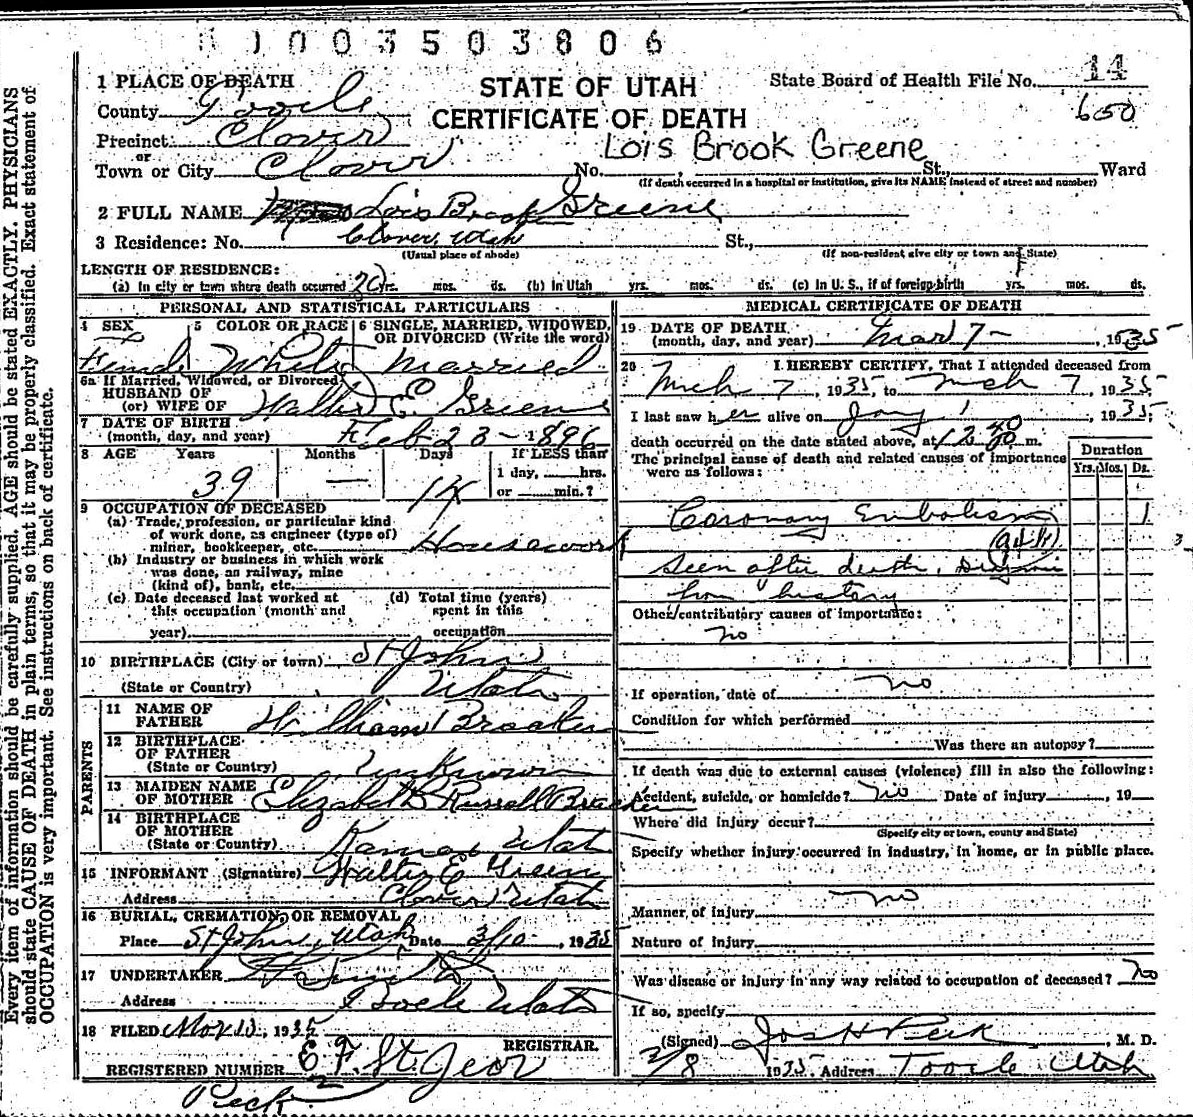 0003503806
1 PLACE OF DEATH
STATE OF UTAH
State Board of Health File No. 14
County Tooele
CERTIFICATE OF DEATH
650
Precinct Clover
or
Lois Brook Greene
Town or City Clover No. , St., Ward
(If death occurred in a hospital or institution, give its NAME instead of street and number)
2 FULL NAME Lois Brook Greene
3 Residence: No. Clover, Utah St.,
(Usual place of abode) (If non-resident give city or town and State)
LENGTH OF RESIDENCE:
(a) In city or town where death occurred 20 yrs. mos. ds. (b) In Utah yrs. mos. ds. (c) In U. S., if of foreign birth yrs. mos. ds.
PERSONAL AND STATISTICAL PARTICULARS
4 SEX 5 COLOR OR RACE 6 SINGLE, MARRIED, WIDOWED,
OR DIVORCED (Write the word)
Female White Married
6a If Married, Widowed, or Divorced
HUSBAND OF
(or) WIFE OF Walter E. Greene
7 DATE OF BIRTH
(month, day, and year) Feb 23-1896
8 AGE Years Months Days If LESS than
1 day, hrs.
39 — 14 or min.?
9 OCCUPATION OF DECEASED
(a) Trade, profession, or particular kind
of work done, as engineer (type of)
miner, bookkeeper, etc. Housework
(b) Industry or business in which work
was done, as railway, mine
(kind of), bank, etc.
(c) Date deceased last worked at (d) Total time (years)
this occupation (month and spent in this
year) occupation
10 BIRTHPLACE (City or town) St John
(State or Country) Utah
PARENTS
11 NAME OF
FATHER William Brooks
12 BIRTHPLACE
OF FATHER
(State or Country) Unknown
13 MAIDEN NAME
OF MOTHER Elizabeth Russell Brooks
14 BIRTHPLACE
OF MOTHER
(State or Country) Kamas Utah
15 INFORMANT (Signature) Walter E Greene
Address Clover Utah
16 BURIAL, CREMATION, OR REMOVAL
Place St John, Utah Date 3/10, 1935
17 UNDERTAKER
Address Tooele Utah
18 FILED Mar 13, 1935
REGISTRAR.
REGISTERED NUMBER E F. St. Jeor
2
Peck
MEDICAL CERTIFICATE OF DEATH
19 DATE OF DEATH
(month, day, and year) Mar 7- , 1935
20 I HEREBY CERTIFY, That I attended deceased from
Mch 7, 1935, to Mch 7, 1935
I last saw her alive on Jany 1, 1935;
death occurred on the date stated above, at 12 40 m.
The principal cause of death and related causes of importance
were as follows:
Duration
Yrs. Mos. Ds.
Coronary Embolism 1
(94b)
3
Seen after death,
from history
Other contributory causes of importance:
no
If operation, date of no
Condition for which performed
Was there an autopsy?
If death was due to external causes (violence) fill in also the following:
Accident, suicide, or homicide? no Date of injury , 19
Where did injury occur?
(Specify city or town, county and State)
Specify whether injury occurred in industry, in home, or in public place.
no
Manner of injury
Nature of injury
Was disease or injury in any way related to occupation of deceased? no
If so, specify
(Signed) Jos H Peck, M. D.
3/8 1935 Address Tooele Utah
Every item of information should be carefully supplied. AGE should be stated EXACTLY. PHYSICIANS
should state CAUSE OF DEATH in plain terms, so that it may be properly classified. Exact statement of
OCCUPATION is very important. See instructions on back of certificate.